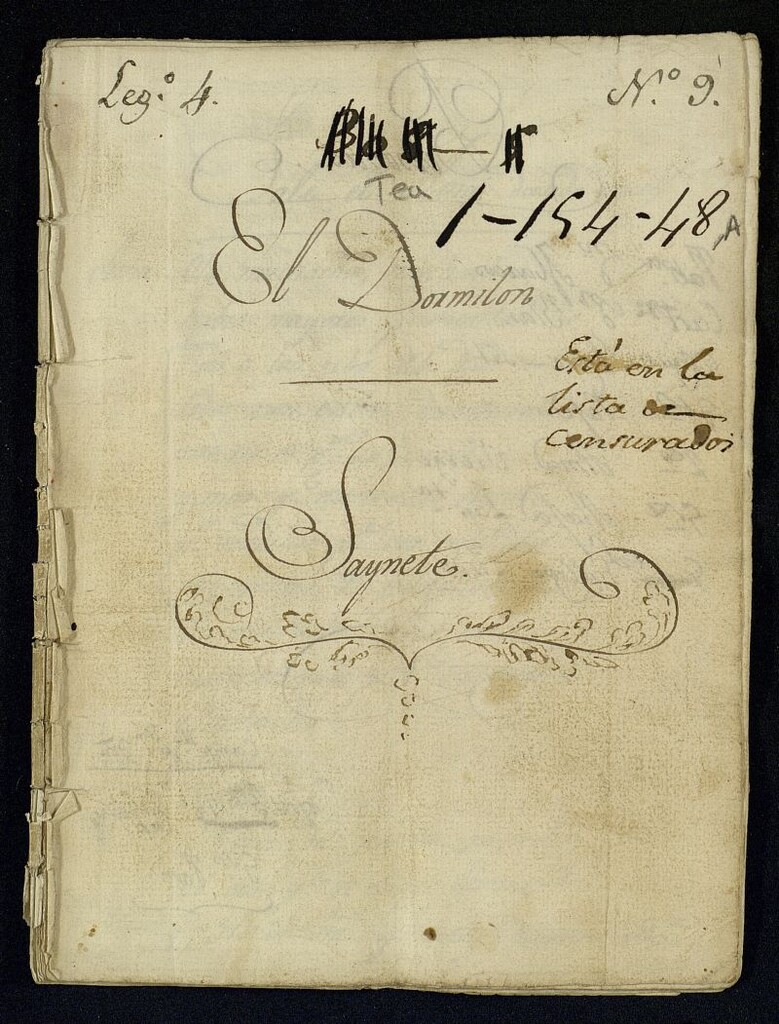 Leg.º 4.
N.º 9.
Tea
1-154-48,A
El Dormilon
Está en la
lista de
censurados
Saynete.